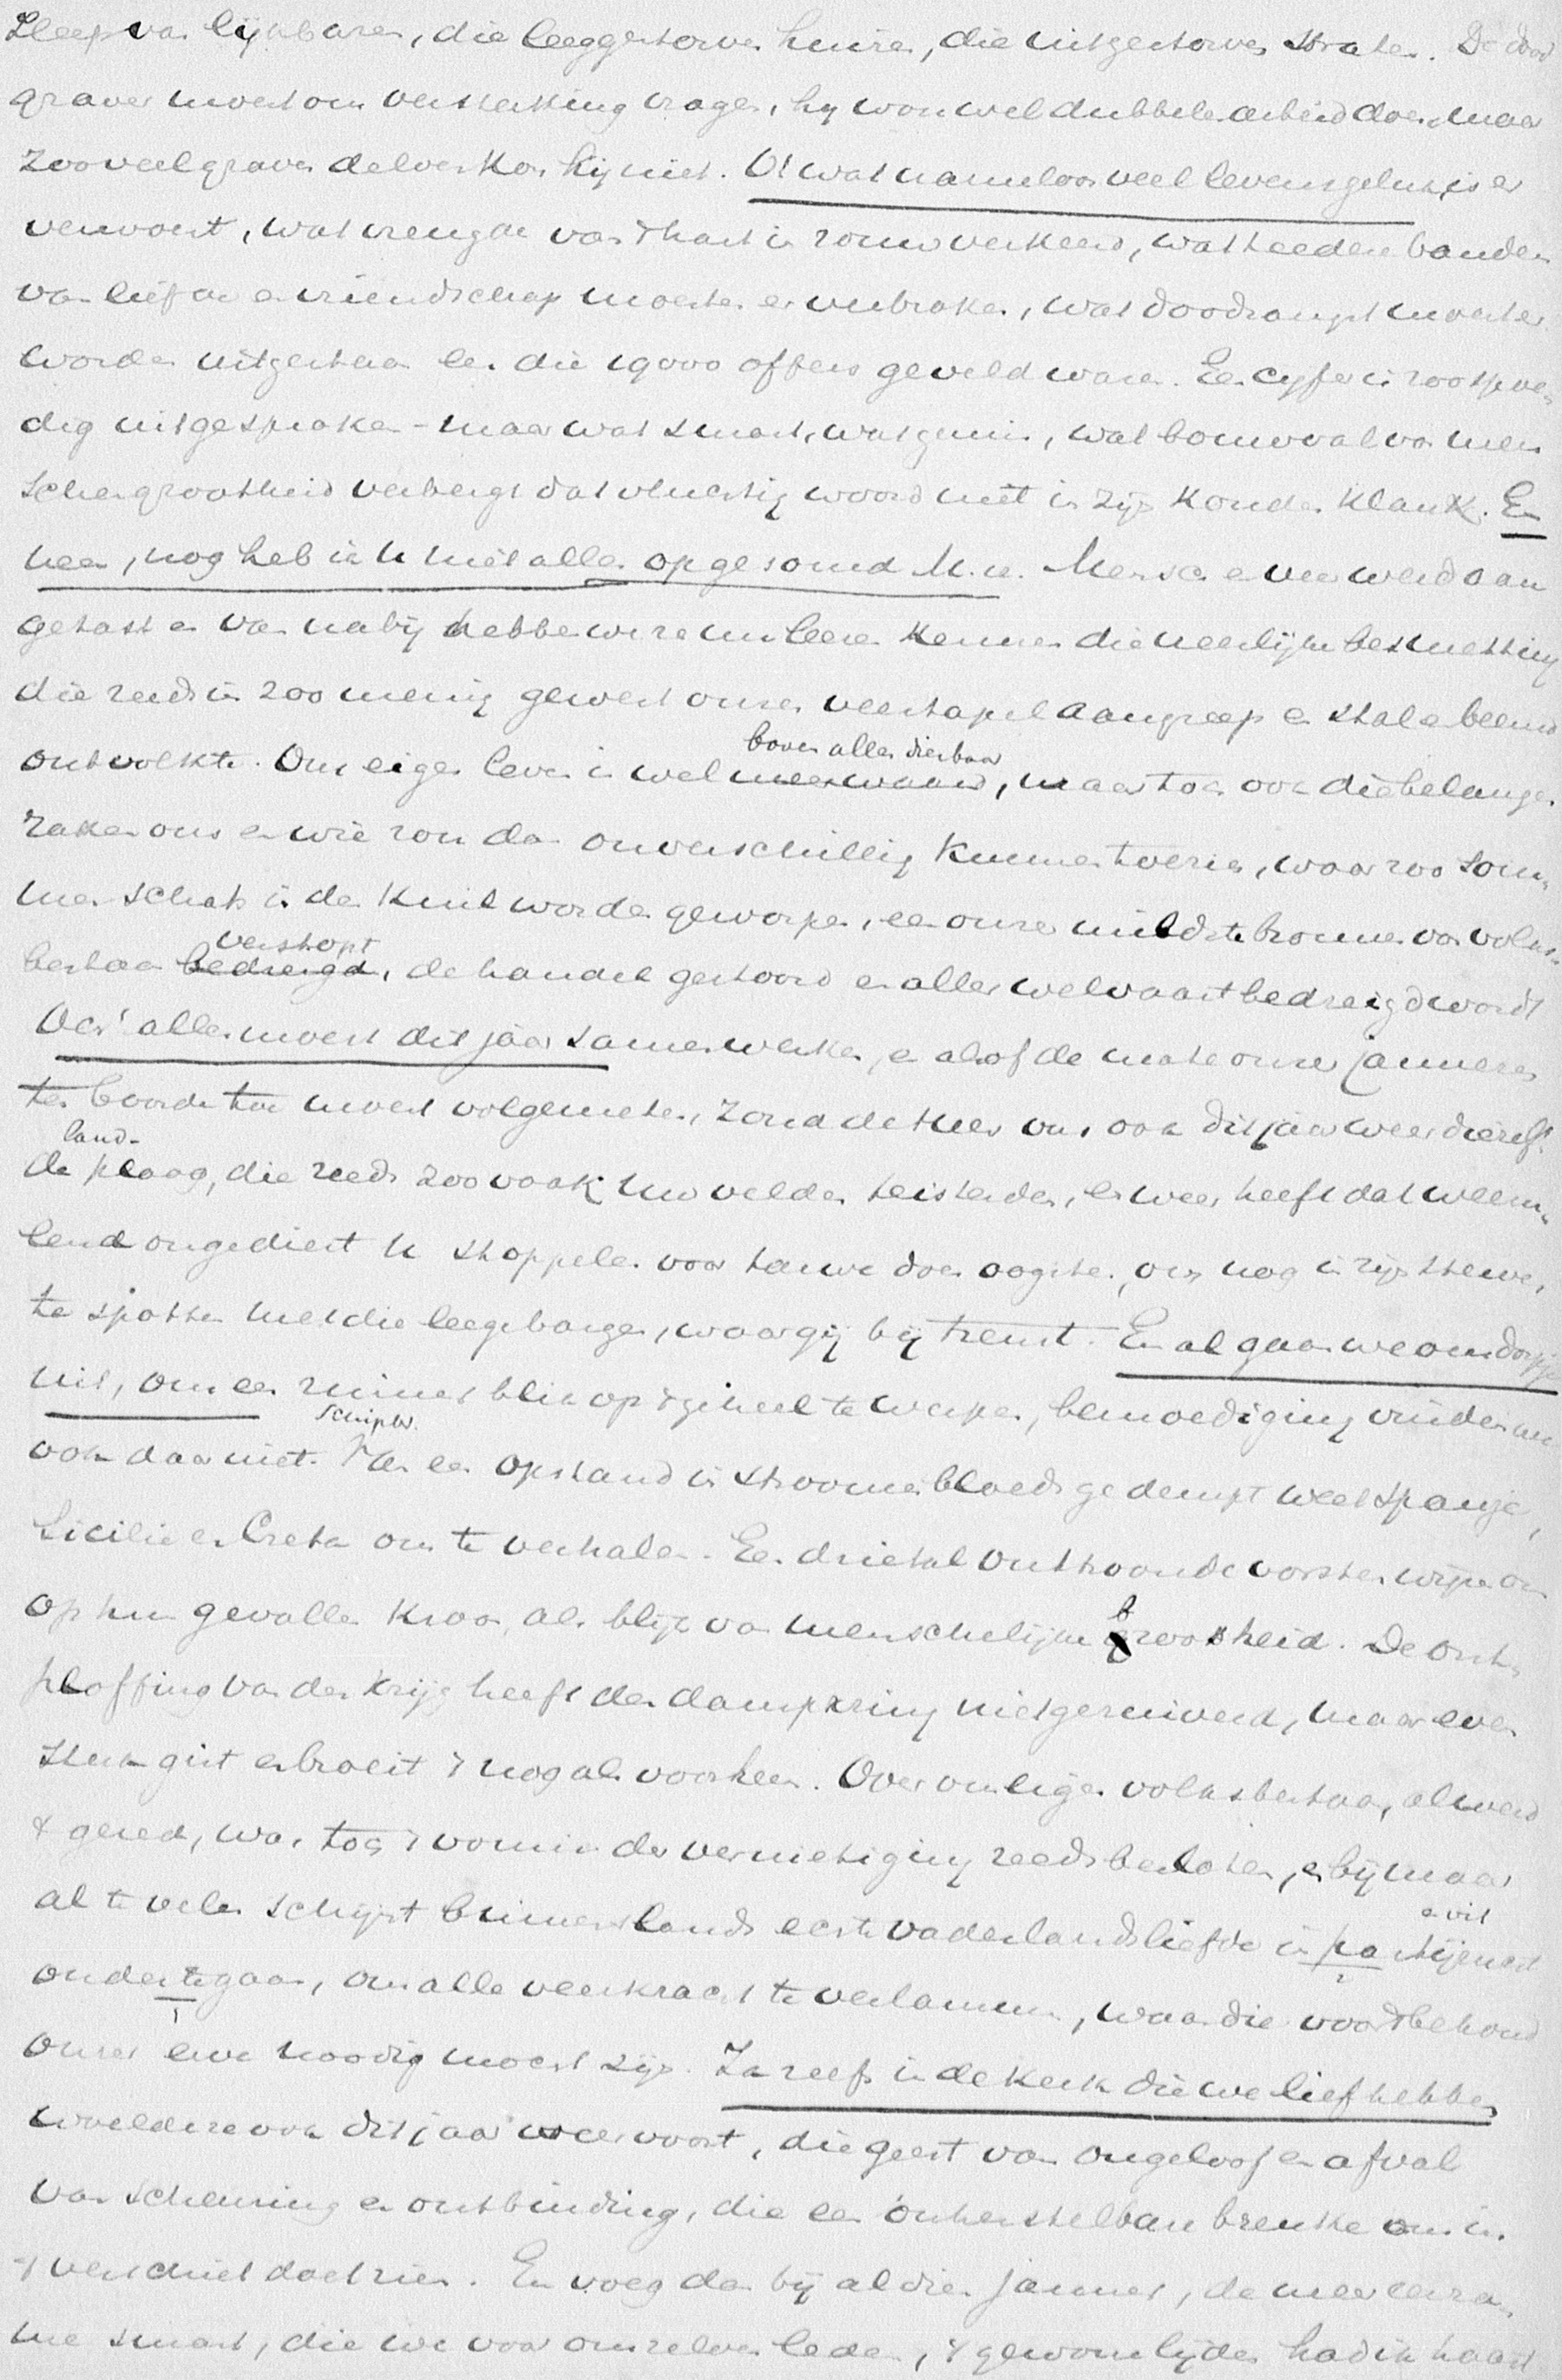 Sleep van lijkbaren, die leeggestorven huizen, die uitgestorven straten. De dood
graver moest om versterking vragen, hij wou wel dubbelen arbeid doen, maar
zooveel graven delven kon hij niet. O! wat nameloos veel levensgeluk is er
verwoest, wat vreugde van 't hart in rouw verkeerd, wat teedere banden
van liefde en vriendschap moesten er verbroken, wat doodsangst moest er
worden uitgestaan eer die 19000 offers geveld waren. Een cyfer is zoo spoe-
dig uitgesproken - maar wat smart, wat gemis, wat bouwval van men
schengrootheid verbergt dat vluchtig woord niet in zijn kouden klank. En
neen, nog heb ik U niet alles opgesomd M.H. Mensch en vee werd aan
getast en van nabij hebben we ze nu leeren kennen die heerlijke besmetting
die reeds in zoo menig gewest onzen veestapel aangreep en stal en beemd
ontvolkte. Ons eigen leven is wel meer waard, maar toch ook die belangen
boven alles dierbaar
raken ons en wie zou dan onverschillig kunnen toezien, waar zoo som-
men schats in den kuil worden geworpen, een onzer mildste bronnen van volks-
verstopt
bestaan bedreigd, de handel gestoord en aller welvaart bedreigd wordt
Och! alles moest dit jaar samenwerken, en alsof de mate onzer jammeren
ten boorde toe moest volgemeten, zond de Heer ons ook dit jaar weer diezelf-
land-
de plaag, die reeds zoo vaak Uw velden teisterde, en weer heeft dat weem-
lend ongediert U stoppelen voor tarwe doen oogsten, om nog in zijn sterven,
te spotten met die leege bargen, waar gij bij treurt. En al gaan we ons dorpje
uit, om een ruimer blik op 't geheel te werpen, bemoediging vinden we
schipbr.
ook daar niet. Van een opstand in stroomen bloeds gedempt weet Spanje,
Sicilie en Creta ons te verhalen. Een drietal onttroonde vorsten wijzen ons
op hun gevallen kroon, als blijk van menschelijke broosheid. De ont-
b
ploffing van den krijg heeft den dampkring niet gezuiverd, maar even
sterk gist en broeit 't nog als voorheen. Over ons eigen volksbestaan, al werd
't gered, was toch 't vonnis der vernietiging reeds besloten, en bij maar
al te velen schijnt binnenslands echte vaderlandsliefde in partijenist
en vit
onder te gaan, om alle veerkracht te verlammen, waar die voor 't behoud
onzer eere noodig moest zijn. Ja zelfs in de kerk die we lief hebben
woelde ook dit jaar weer voort, die geest van ongeloof en afval
van scheuring en ontbinding, die een onherstelbare breuke ons in
't verschiet doet zien. En voeg dan bij al dien jammer, de meer eenza-
me smart, die we voor onszelven leden, 't gewone lijden had ik haast